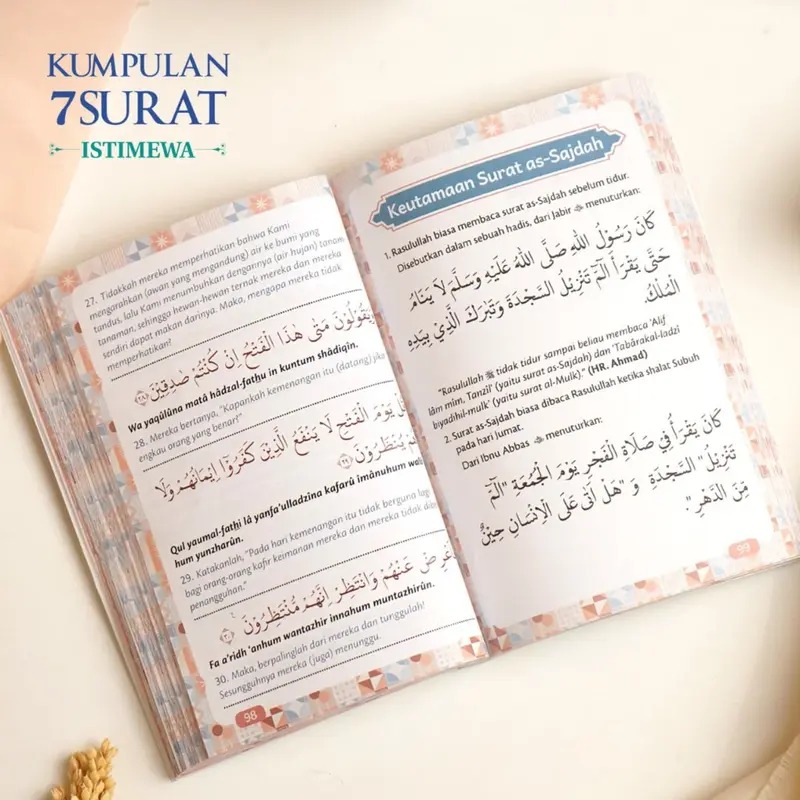 KUMPULAN
7SURAT
ISTIMEWA
27. Tidakkah mereka memperhatikan bahwa Kami
mengarahkan (awan yang mengandung) air ke bumi yang
tandus, lalu Kami menumbuhkan dengannya (air hujan) tanam
tanaman, sehingga hewan-hewan ternak mereka dan mereka
sendiri dapat makan darinya. Maka, mengapa mereka tidak
memperhatikan?
وَيَقُوْلُوْنَ مَتٰى هٰذَا الْفَتْحُ اِنْ كُنْتُمْ صٰدِقِيْنَ ﴿٢٨﴾
Wa yaqûlûna matâ hâdzal-fatḥu in kuntum shâdiqîn.
28. Mereka bertanya, "Kapankah kemenangan itu (datang) jika
engkau orang yang benar?"
قُلْ يَوْمَ الْفَتْحِ لَا يَنْفَعُ الَّذِيْنَ كَفَرُوْٓا اِيْمَانُهُمْ وَلَا
هُمْ يُنْظَرُوْنَ ﴿٢٩﴾
Qul yaumal-fatḥi lâ yanfa'ulladzina kafarû imânuhum wa
hum yunzharûn.
29. Katakanlah, "Pada hari kemenangan itu tidak berguna lag
bagi orang-orang kafir keimanan mereka dan mereka tidak dib
penangguhan."
فَاَعْرِضْ عَنْهُمْ وَانْتَظِرْ اِنَّهُمْ مُّنْتَظِرُوْنَ ﴿٣٠﴾
Fa a'ridh 'anhum wantazhir innahum muntazhirûn.
30. Maka, berpalinglah dari mereka dan tunggulah!
Sesungguhnya mereka (juga) menunggu.
98
Keutamaan Surat as-Sajdah
1. Rasulullah biasa membaca surat as-Sajdah sebelum tidur.
Disebutkan dalam sebuah hadis, dari Jabir menuturkan:
كَانَ رَسُوْلُ اللّٰهِ صَلَّى اللّٰهُ عَلَيْهِ وَسَلَّمَ لَا يَنَامُ
حَتّٰى يَقْرَأَ الٓمّٓ تَنْزِيْلُ السَّجْدَةَ وَتَبٰرَكَ الَّذِيْ بِيَدِهِ
الْمُلْكُ.
"Rasulullah ﷺ tidak tidur sampai beliau membaca 'Alif
lâm mîm, Tanzîl' (yaitu surat as-Sajdah) dan 'Tabârakal-ladzî
biyadihil-mulk' (yaitu surat al-Mulk)." (HR. Ahmad)
2. Surat as-Sajdah biasa dibaca Rasulullah ketika shalat Subuh
pada hari Jumat.
Dari Ibnu Abbas menuturkan:
كَانَ يَقْرَأُ فِيْ صَلَاةِ الْفَجْرِ يَوْمَ الْجُمُعَةِ "الٓمّٓ
تَنْزِيْلُ" السَّجْدَةَ وَ "هَلْ اَتٰى عَلَى الْاِنْسَانِ حِيْنٌ
مِّنَ الدَّهْرِ".
99